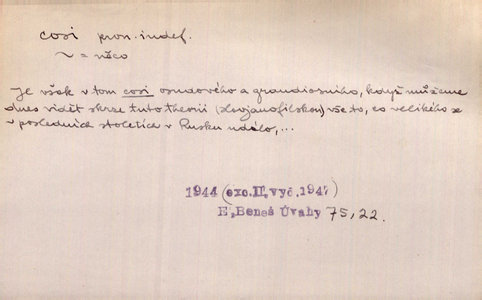 cosi pron. indef.
~ = něco
Je však v tom cosi osudového a grandiosního, když můžeme
dnes vidět skrze tuto theorii (slovjanofilskou) vše to, co velikého se
v posledních stoletích v Rusku událo,...
1944 (exc. II, vyd. 1947)
E. Beneš Úvahy 75, 22.